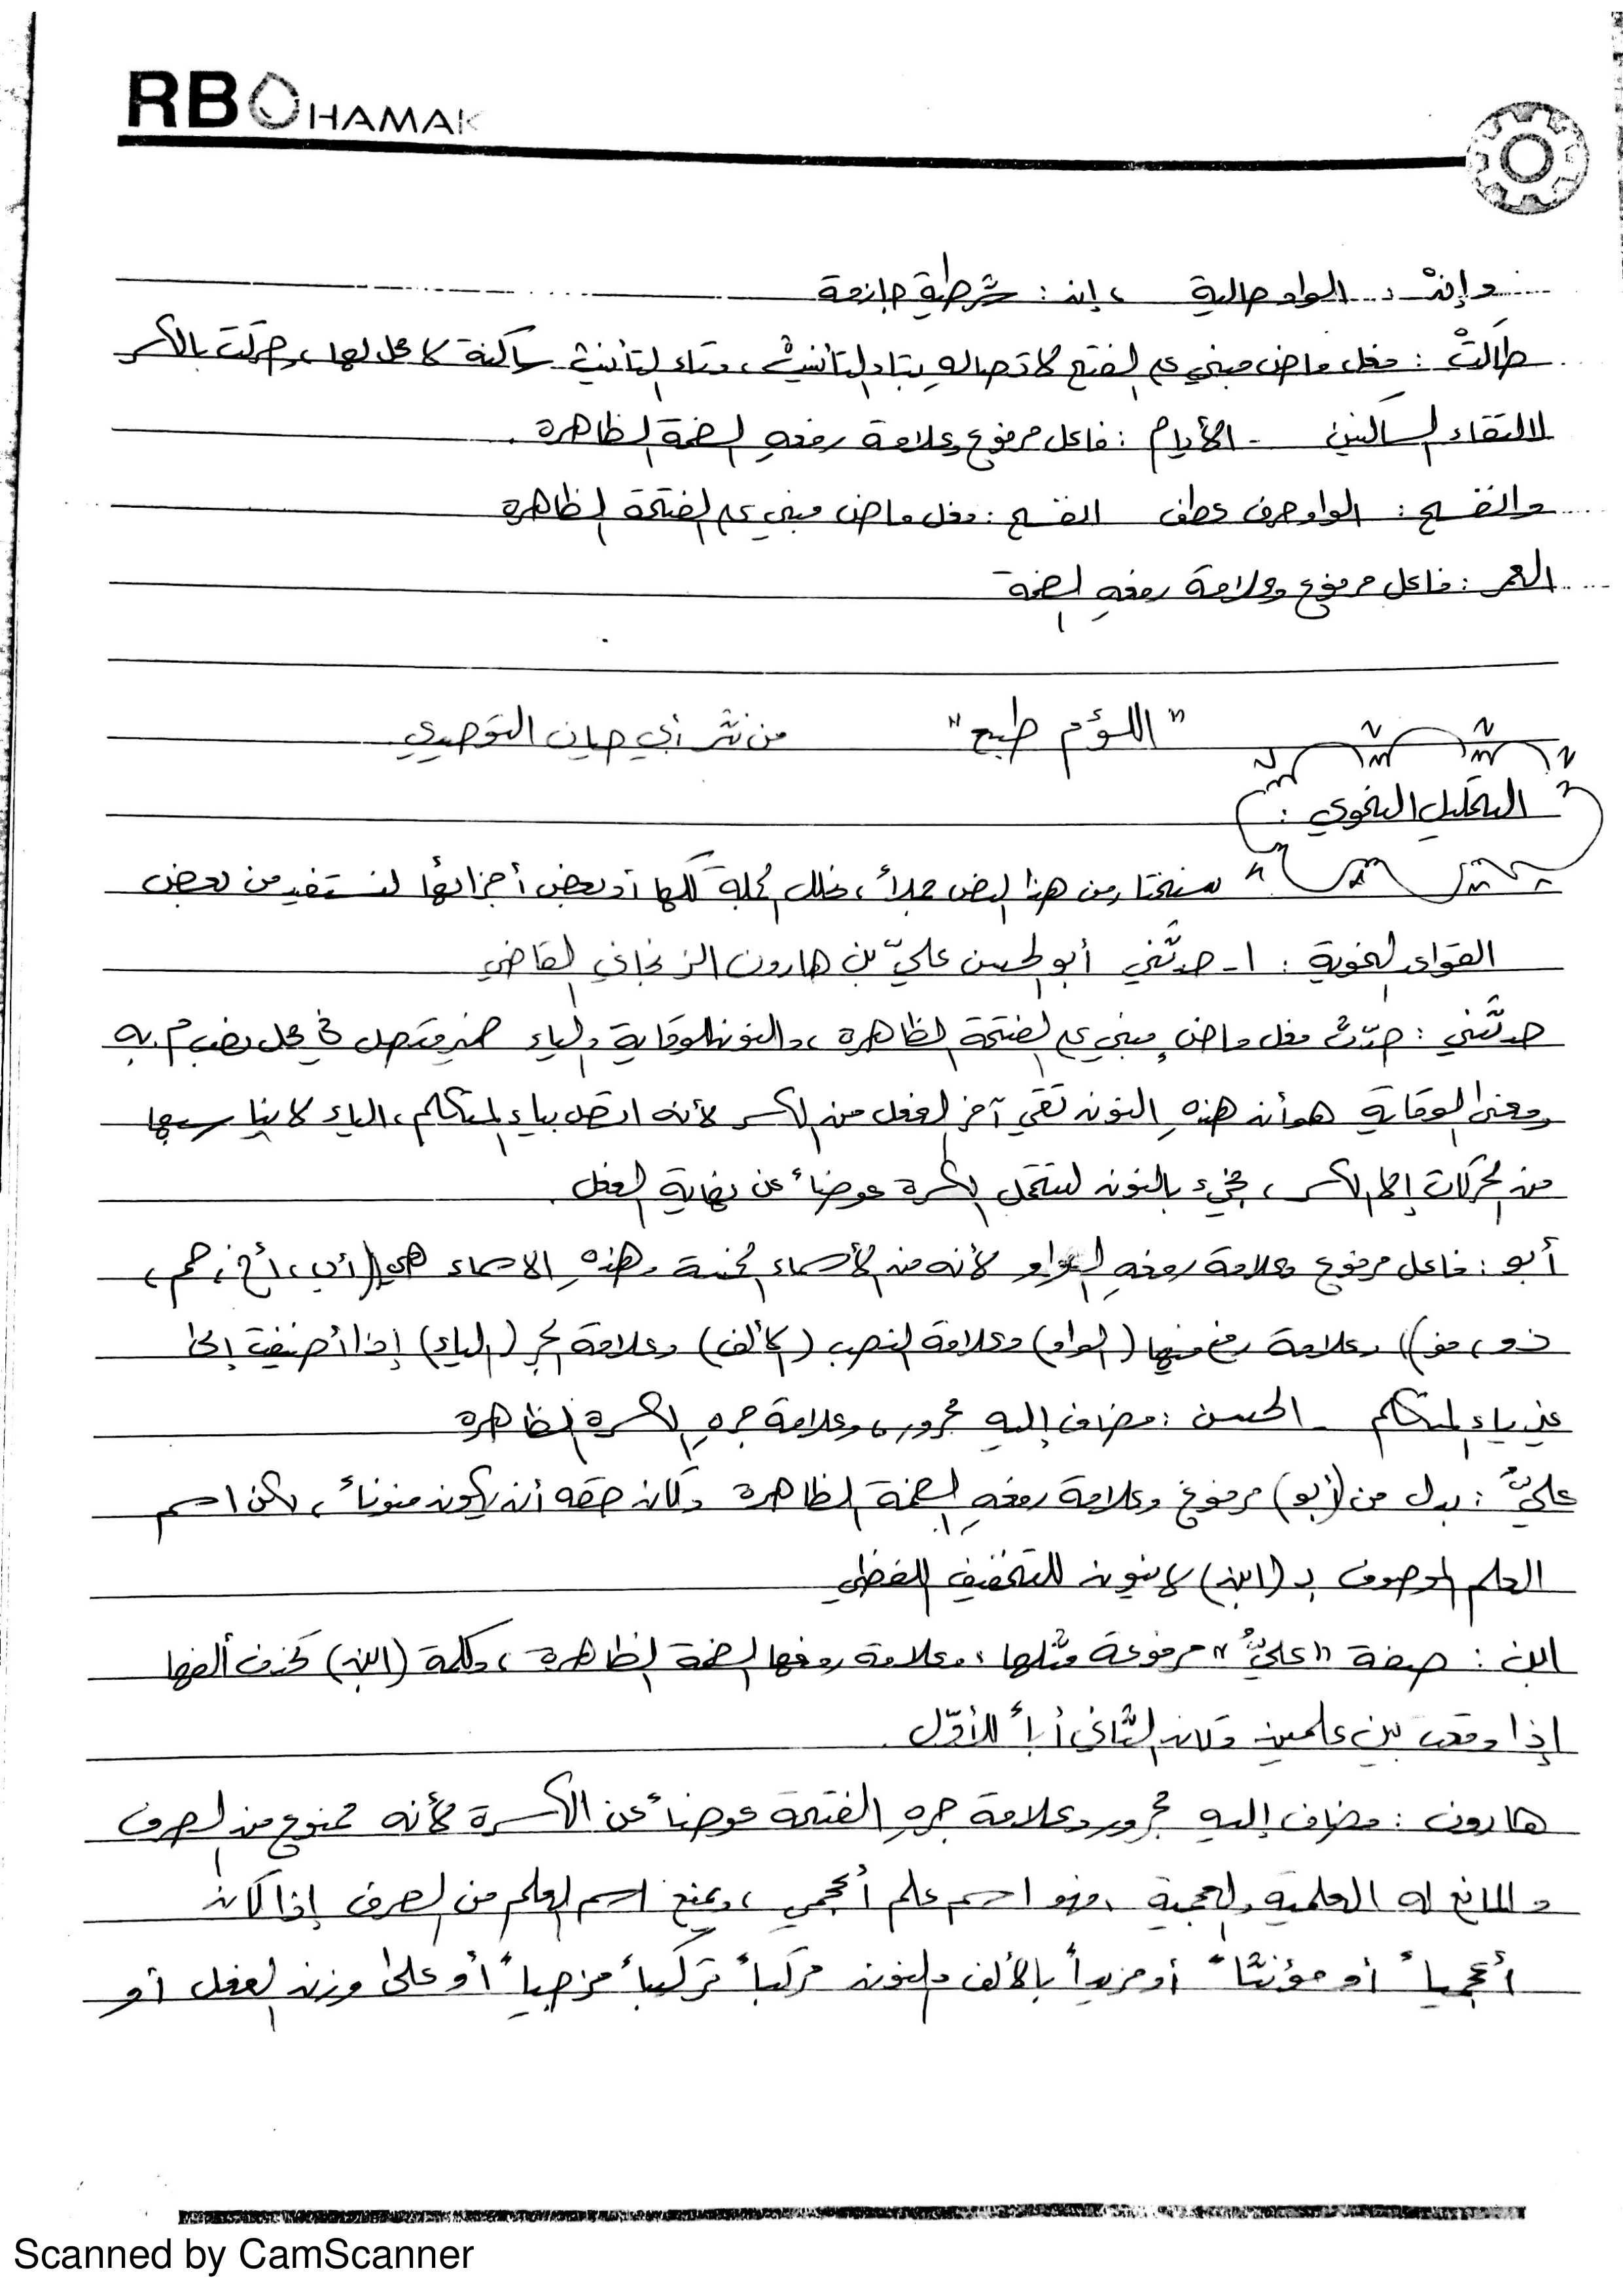 RB HAMAK
وإنْ : الواو حالية ، إن : شرطية جازمة
طالتْ : فعل ماض مبني على الفتح لاتصالهِ بتاء التأنيث ، وتاء التأنيث ساكنة لا محل لها ، وحركت بالكسر
لالتقاء الساكنين - الأيام : فاعل مرفوع وعلامة رفعهِ الضمة الظاهرة .
وانفسح : الواو حرف عطف انفسح : فعل ماض مبني على الفتحة الظاهرة
العمر : فاعل مرفوع وعلامة رفعهِ الضمة
"اللؤم طبع" من نثر أبي حيان التوحيدي
التحليل النحوي :
سنختار من هذا النص جملاً ، نحلل الجملة كلها أو بعض أجزائها لنستفيد من بعض
القواعد النحوية : ١- حدثني أبو الحسن عليّ بن هارون الزنجاني القاضي
حدثّني : حدّث فعل ماضٍ مبني على الفتحة الظاهرة ، والنون للوقاية والياء ضمير متصل في محل نصب م . به
ومعنى الوقاية هو أن هذهِ النون تقي آخر الفعل من الكسر لأنه اتصل بياء المتكلم ، الياء لا يناسبها
من الحركات إلا الكسر ، فجيء بالنون لتتحمل الكسرة عوضاً عن نهاية الفعل .
أبو : فاعل مرفوع وعلامة رفعهِ الواو لأنه من الأسماء الخمسة وهذهِ الاسماء هي ((أب ، أخ ، حم ،
ذو ، فو)) وعلامة رفعها (الواو) وعلامة النصب (الألف) وعلامة الجر (الياء) إذا أضيفت إلى
غير ياء المتكلم - الحسن : مضاف إليه مجرور ، وعلامة جرهِ الكسرة الظاهرة
عليُّ : بدل من (أبو) مرفوع وعلامة رفعهِ الضمة الظاهرة وكان حقه أن يكون منوناً ، لكن اسم
العلم الموصوف بـ (ابن) لا ينون للتخفيف اللفظي
ابن : صفة "عليُّ" مرفوعة مثلها ، وعلامة رفعها الضمة الظاهرة ، وكلمة (ابن) تحذف ألفها
إذا وقعت بين علمين وكان الثاني أباً للأوّل .
هارون : مضاف إليه مجرور وعلامة جرهِ الفتحة عوضاً عن الكسرة لأنه ممنوع من الصرف
والمانع له العلمية والعجمية ، فهو اسم علم أعجمي ، ويمنع اسم العلم من الصرف إذا كان
أعجمياً أو مؤنثاً أو مزيداً بالألف والنون مركباً تركيباً مزجياً أو على وزن الفعل أو
Scanned by CamScanner